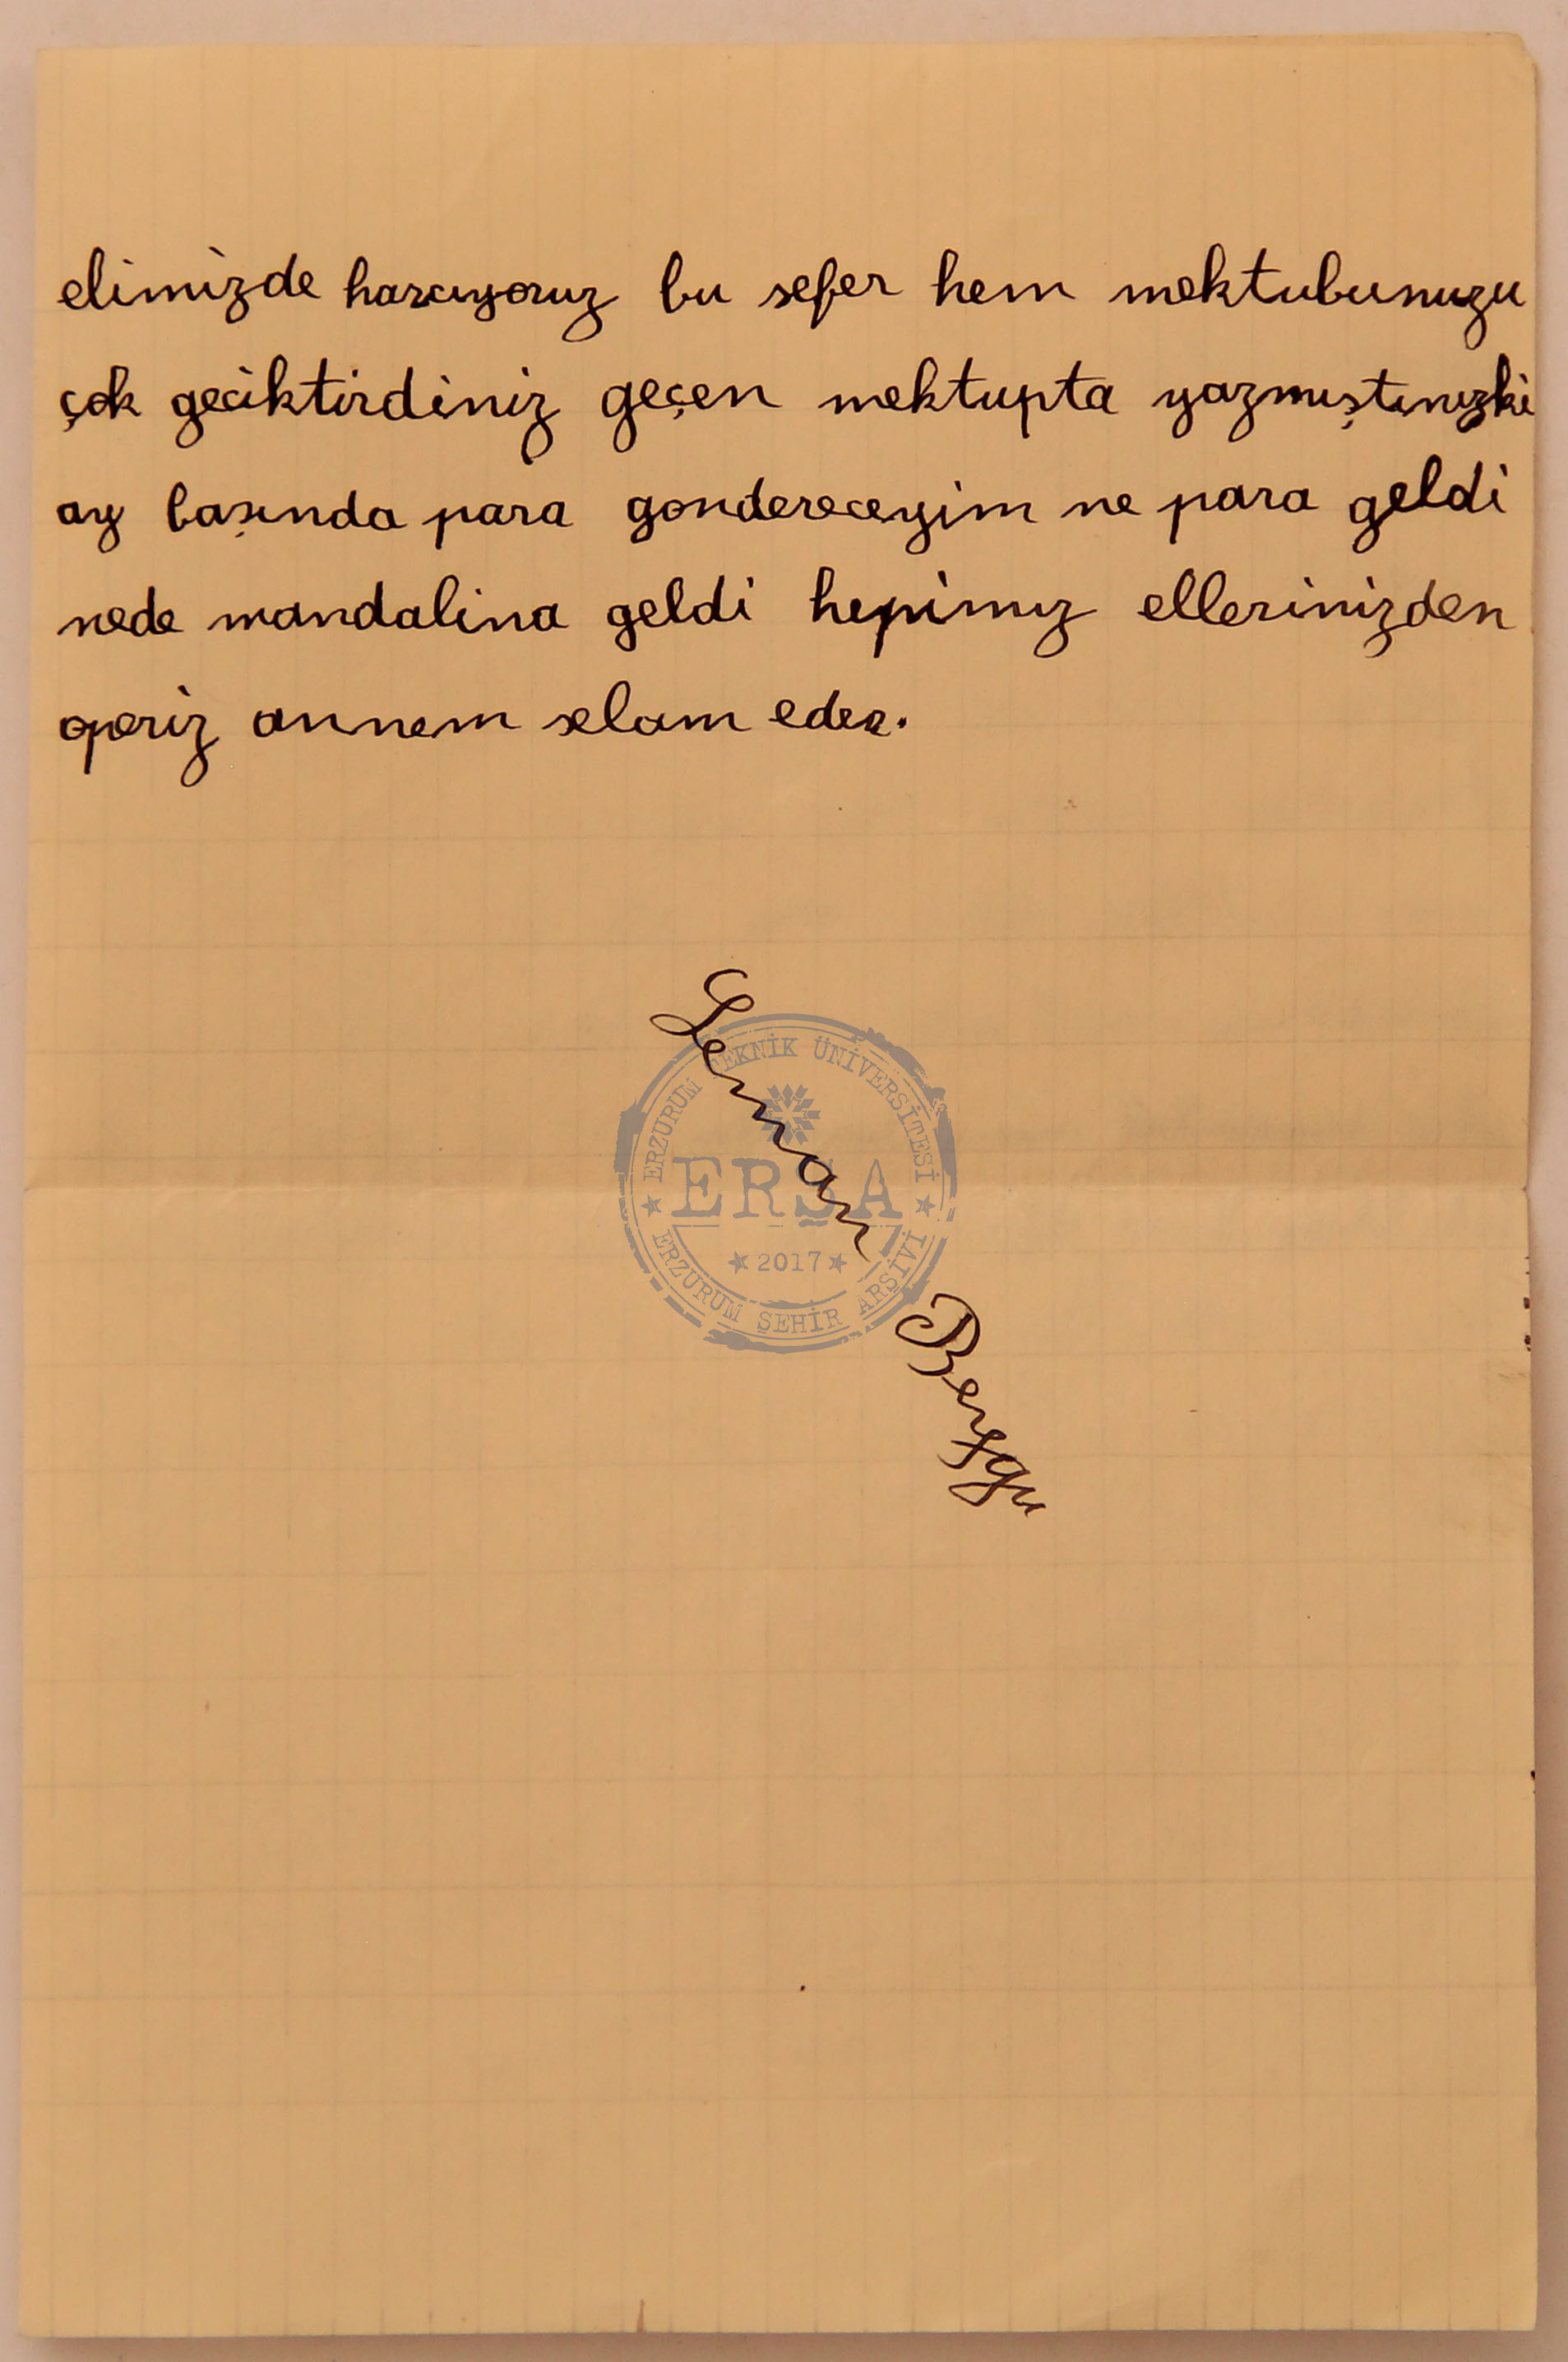 elimizde harcıyoruz bu sefer hem mektubunuzu
çok geciktirdiniz geçen mektupta yazmıştınızki
ay başında para gondereceyim ne para geldi
nede mandalina geldi hepimız ellerinizden
operiz annem selam eder.
Leman
ERZURUM TEKNİK ÜNİVERSİTESİ
ERŞA
2017
ERZURUM ŞEHİR ARŞİVİ